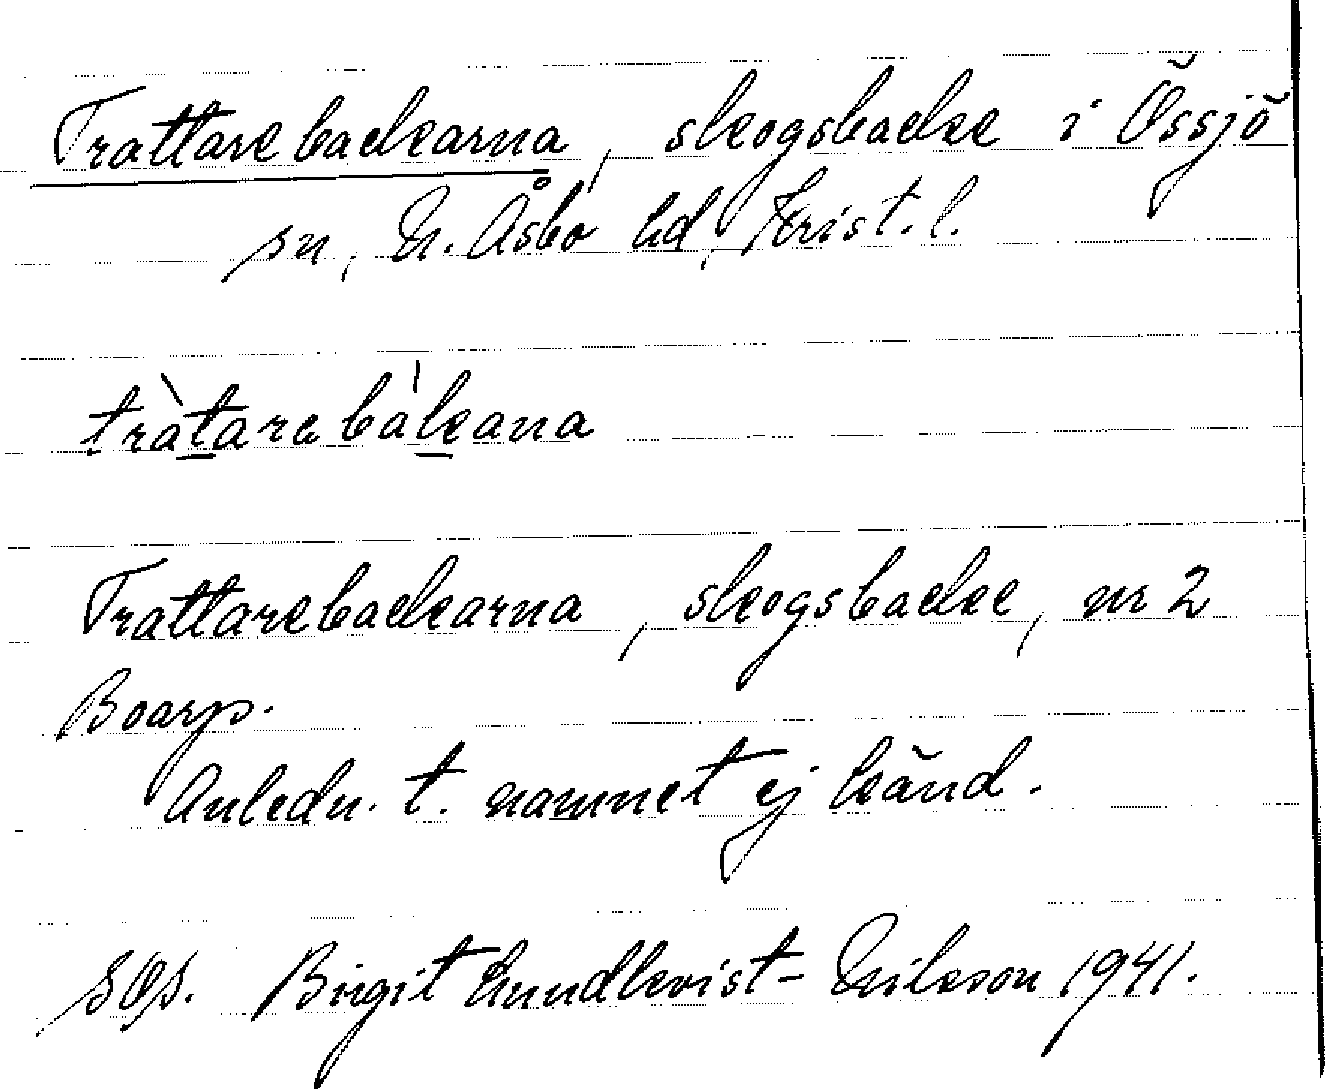 Trattarebackarna, skogsbacke i Össjö
sn, N. Åsbo hd, Krist. l.
tràtarebàkana
Trattarebackarna, skogsbacke, nr 2
Boarp.
Anledn. t. namnet ej känd.
SOs. Birgit Lundkvist-Nilsson 1941.